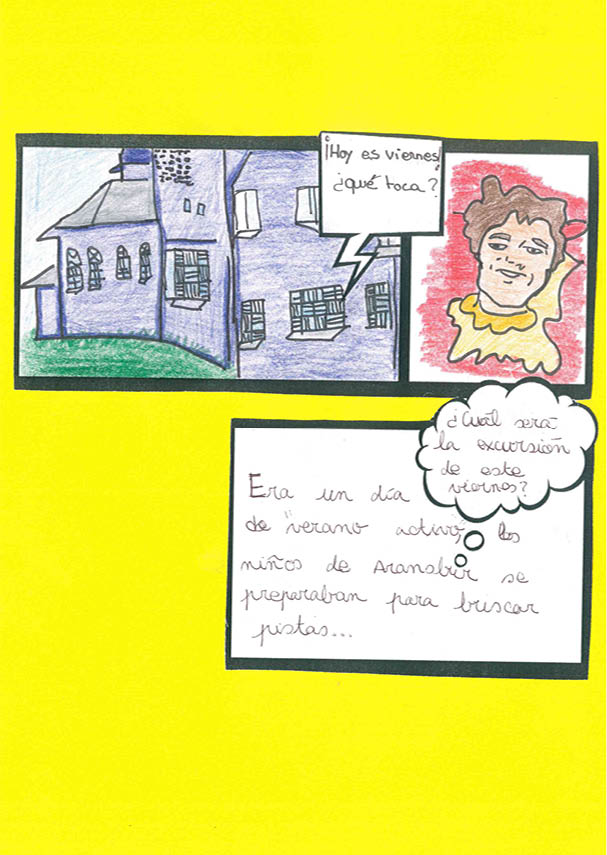 ¡Hoy es viernes!
¿qué toca?
¿Cuál será
la excursión
de este
viernes?
Era un día
de "verano activo", los
niños de Aransbur se
preparaban para buscar
pistas...